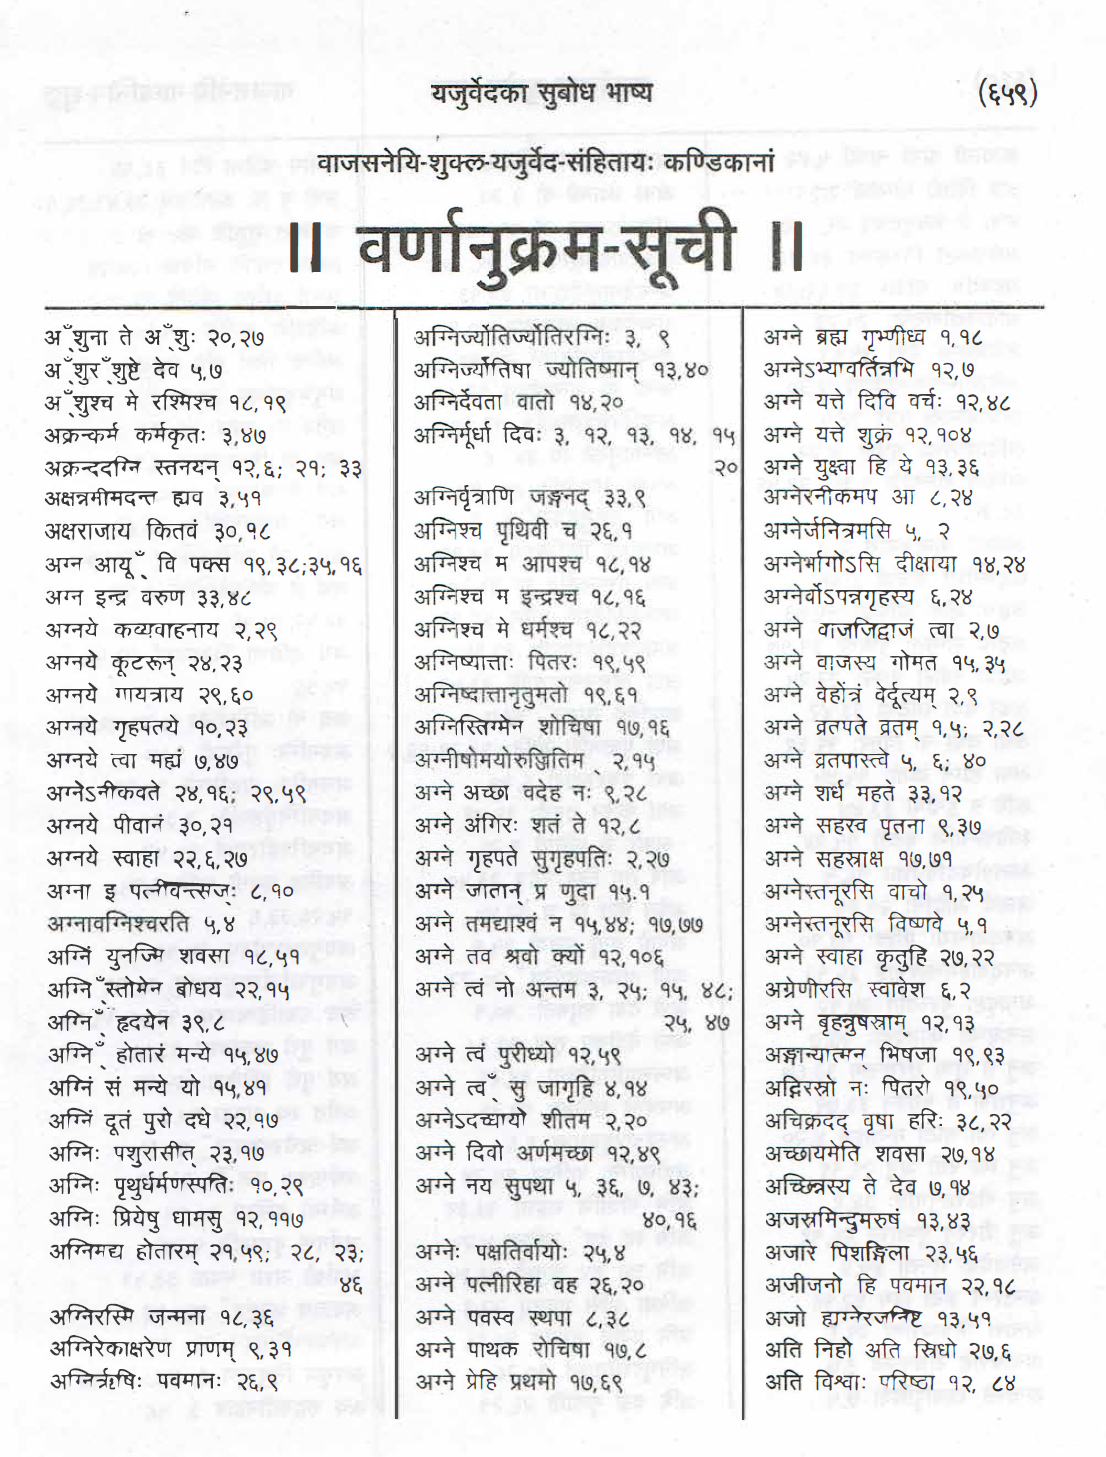 यजुर्वेदका सुबोध भाष्य
(६५९)
वाजसनेयि-शुक्ल-यजुर्वेद-संहितायः कण्डिकानां
॥ वर्णानुक्रम-सूची ॥
अँशुना ते अँशुः २०,२७
अँशुरँशुष्टे देव ५,७
अँशुश्च मे रश्मिश्च १८,१९
अक्रन्कर्म कर्मकृतः ३,४७
अक्रन्ददग्नि स्तनयन् १२,६; २१; ३३
अक्षन्नमीमदन्त ह्यव ३,५१
अक्षराजाय कितवं ३०,१८
अग्न आयूँ वि पक्स १९,३८;३५,१६
अग्न इन्द्र वरुण ३३,४८
अग्नये कव्यवाहनाय २,२९
अग्नये कूटरून् २४,२३
अग्नये गायत्राय २९,६०
अग्नये गृहपतये १०,२३
अग्नये त्वा मह्यं ७,४७
अग्नेऽनीकवते २४,१६; २९,५९
अग्नये पीवानं ३०,२१
अग्नये स्वाहा २२,६,२७
अग्ना इ पत्नीवन्त्सजः ८,१०
अग्नावग्निश्चरति ५,४
अग्निं युनज्मि शवसा १८,५१
अग्निँस्तोमेन बोधय २२,१५
अग्निँ हृदयेन ३९,८
अग्निँ होतारं मन्ये १५,४७
अग्निं सं मन्ये यो १५,४१
अग्निं दूतं पुरो दधे २२,१७
अग्निः पशुरासीत २३,१७
अग्निः पृथुर्धर्मणस्पतिः १०,२९
अग्निः प्रियेषु धामसु १२,११७
अग्निमद्य होतारम् २१,५९; २८, २३;
४६
अग्निरस्मि जन्मना १८,३६
अग्निरेकाक्षरेण प्राणम् ९,३१
अग्निर्ऋषिः पवमानः २६,९
अग्निर्ज्योतिर्ज्योतिरग्निः ३, ९
अग्निर्ज्योतिषा ज्योतिष्मान् १३,४०
अग्निर्देवता वातो १४,२०
अग्निर्मूर्धा दिवः ३, १२, १३, १४, १५
२०
अग्निर्वृत्राणि जङ्घनद् ३३,९
अग्निश्च पृथिवी च २६,१
अग्निश्च म आपश्च १८,१४
अग्निश्च म इन्द्रश्च १८,१६
अग्निश्च मे धर्मश्च १८,२२
अग्निष्यात्ताः पितरः १९,५९
अग्निष्दात्तानृतुमतो १९,६१
अग्निस्तिग्मेन शोचिषा १७,१६
अग्नीषोमयोरुज्जितिम २,१५
अग्ने अच्छा वदेह नः ९,२८
अग्ने अंगिरः शतं ते १२,८
अग्ने गृहपते सुगृहपतिः २,२७
अग्ने जातान् प्र णुदा १५.१
अग्ने तमद्याश्वं न १५,४४; १७,७७
अग्ने तव श्रवो क्यों १२,१०६
अग्ने त्वं नो अन्तम ३, २५; १५, ४८;
२५, ४७
अग्ने त्वं पुरीध्यो १२,५९
अग्ने त्वँ सु जागृहि ४,१४
अग्नेऽदच्धायो शीतम २,२०
अग्ने दिवो अर्णमच्छा १२,४९
अग्ने नय सुपथा ५, ३६, ७, ४३;
४०,१६
अग्नेः पक्षतिर्वायोः २५,४
अग्ने पत्नीरिहा वह २६,२०
अग्ने पवस्व स्थपा ८,३८
अग्ने पाथक रोचिषा १७,८
अग्ने प्रेहि प्रथमो १७,६९
अग्ने ब्रह्म गृभ्णीध्व १,१८
अग्नेऽभ्यावर्तिन्नभि १२,७
अग्ने यत्ते दिवि वर्चः १२,४८
अग्ने यत्ते शुक्रं १२,१०४
अग्ने युक्ष्वा हि ये १३,३६
अग्नेरनीकमप आ ८,२४
अग्नेर्जनित्रमसि ५, २
अग्नेर्भागोऽसि दीक्षाया १४,२४
अग्नेर्वोऽपन्नगृहस्य ६,२४
अग्ने वाजजिद्वाजं त्वा २,७
अग्ने वाजस्य गोमत १५,३५
अग्ने वेर्होत्रं वेर्दूत्यम् २,९
अग्ने व्रतपते व्रतम् १,५; २,२८
अग्ने व्रतपास्त्वे ५, ६; ४०
अग्ने शर्ध महते ३३,१२
अग्ने सहस्व पृतना ९,३७
अग्ने सहस्राक्ष १७,७१
अग्नेस्तनूरसि वाचो १,२५
अग्नेस्तनूरसि विष्णवे ५,१
अग्ने स्वाहा कृतुहि २७,२२
अग्रेणीरसि स्वावेश ६,२
अग्ने बृहन्नुषस्राम् १२,१३
अङ्गान्यात्मन भिषजा १९,९३
अद्गिरस्रो नः पितरो १९,५०
अचिक्रदद् वृषा हरिः ३८,२२
अच्छायमेति शवसा २७,१४
अच्छिन्नस्य ते देव ७,१४
अजस्रमिन्दुमरुषं १३,४३
अजारे पिशङ्गिला २३,५६
अजीजनो हि पवमान २२,१८
अजो ह्यग्नेरजनिष्ट १३,५१
अति निहो अति स्रिधो २७,६
अति विश्वाः परिष्ठा १२, ८४